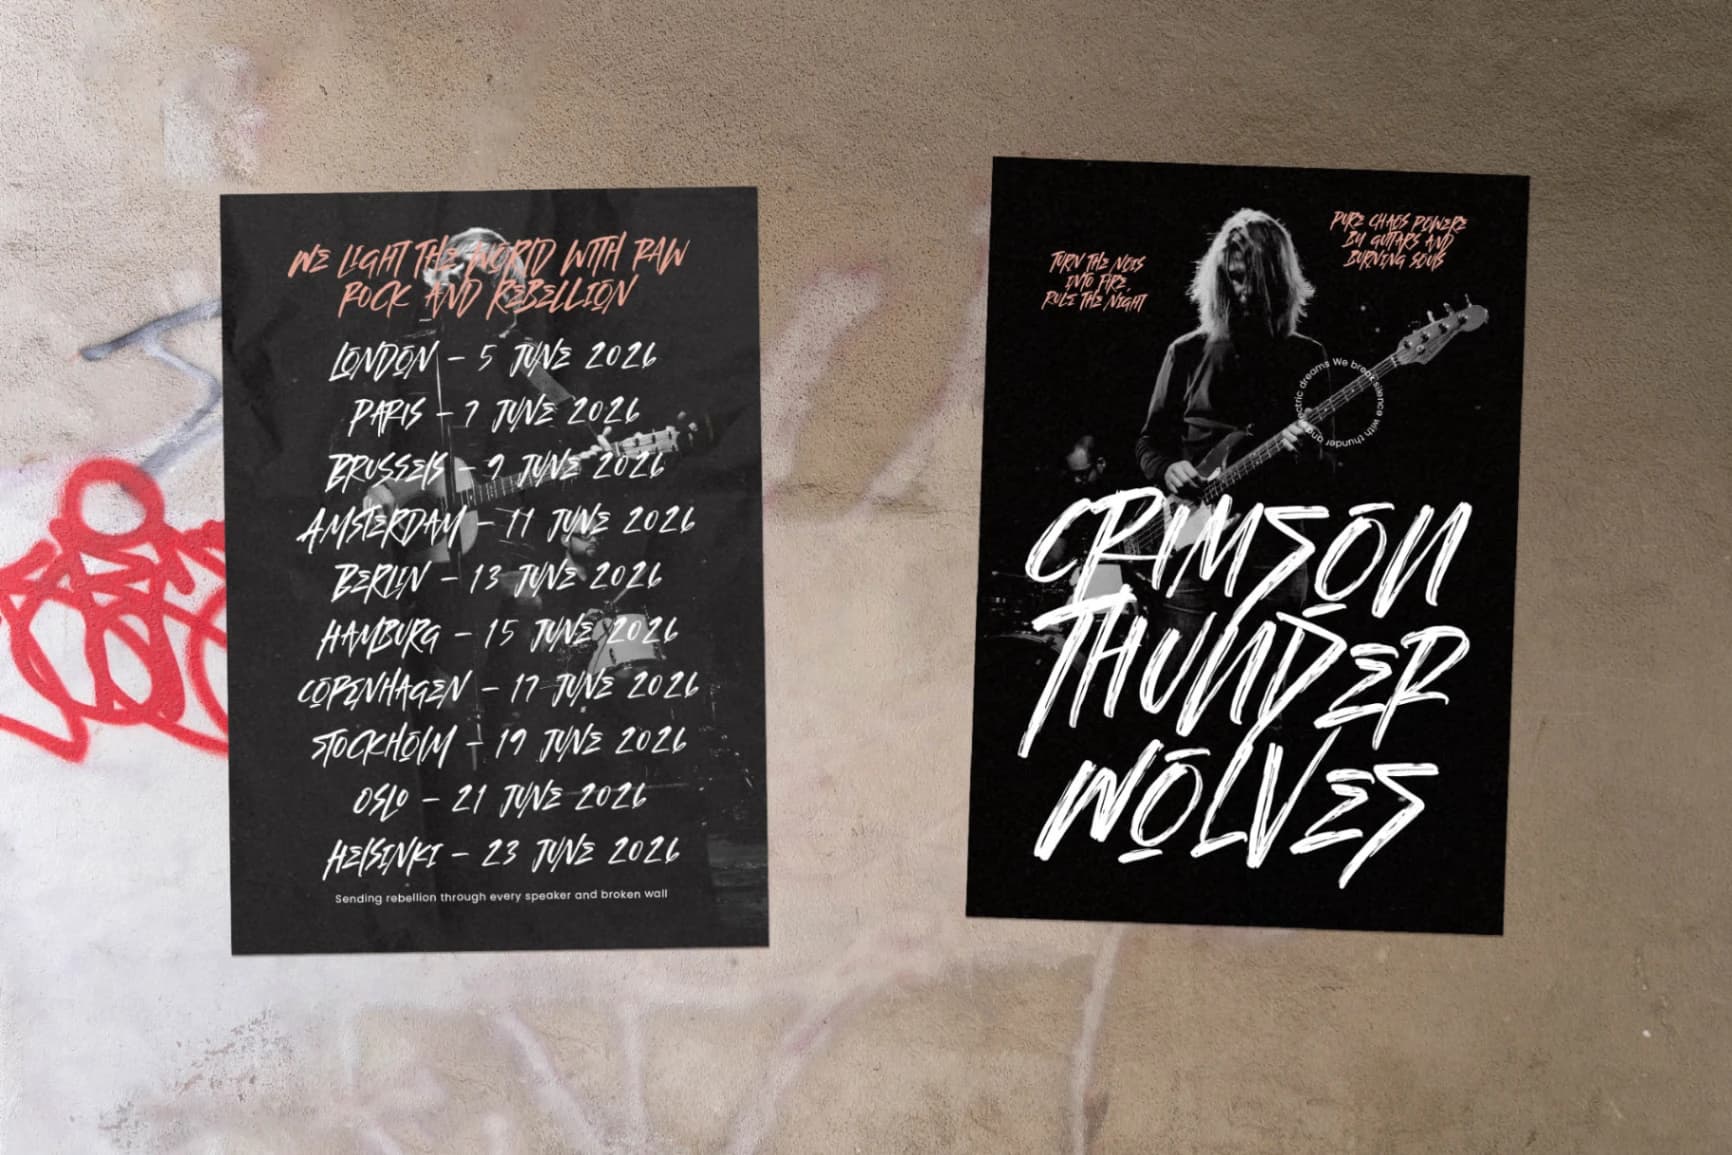 WE LIGHT THE WORLD WITH RAW
ROCK AND REBELLION
LONDON – 5 JUNE 2026
PARIS – 7 JUNE 2026
BRUSSELS – 9 JUNE 2026
AMSTERDAM – 11 JUNE 2026
BERLIN – 13 JUNE 2026
HAMBURG – 15 JUNE 2026
COPENHAGEN – 17 JUNE 2026
STOCKHOLM – 19 JUNE 2026
OSLO – 21 JUNE 2026
HELSINKI – 23 JUNE 2026
Sending rebellion through every speaker and broken wall
TURN THE NOIS
INTO FIRE,
RULE THE NIGHT
PURE CHAOS POWERE
BY GUITARS AND
BURNING SOULS
We break silence with thunder and electric dreams
CRIMSON
THUNDER
WOLVES